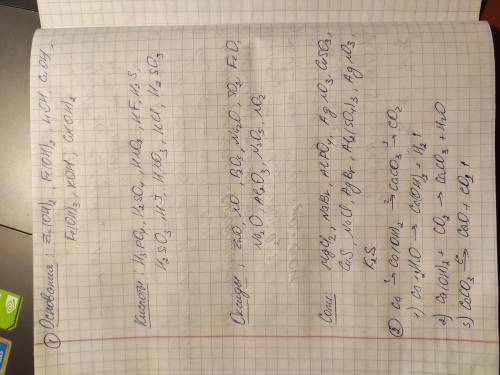 ① Основания: Zn(OH)2, Fe(OH)2, LiOH, CuOH,
Fe(OH)3, KOH, Cu(OH)2
Кислоты: H3PO4, H2SO4, HNO2, HF, H2S,
H2SiO3, HI, HNO3, HCl, H2SO3
Оксиды: ZnO, NO, Na2O, SO2, FeO,
N2O, Al2O3, NO2
Соли: MgCl2, NaBr, AlPO4, AgNO3, CaSO3,
CuS, NaCl, AgBr, Al2(SO4)3, AgNO3,
K2S
② Ca → Ca(OH)2 → CaCO3 → CO2
1) → Ca(OH)2 + H2↑
2) Ca(OH)2 + CO2 → CaCO3 + H2O
3) CaCO3 → CaO + CO2↑